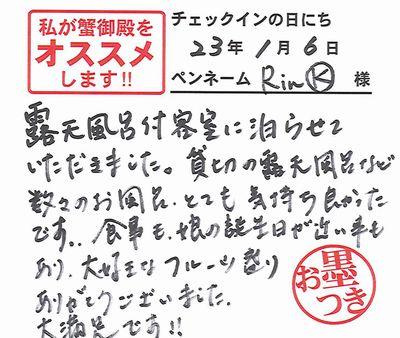 私が蟹御殿を
オススメ
します!!
チェックインの日にち
23年1月6日
ペンネーム RinⓀ 様
露天風呂付客室に泊らせて
いただきました。貸切の露天風呂など
数々のお風呂、とても気持ち良かった
です。食事も、娘の誕生日が近い事も
あり、大好きなフルーツ盛り
ありがとうございました。
大満足です!!
お墨つき